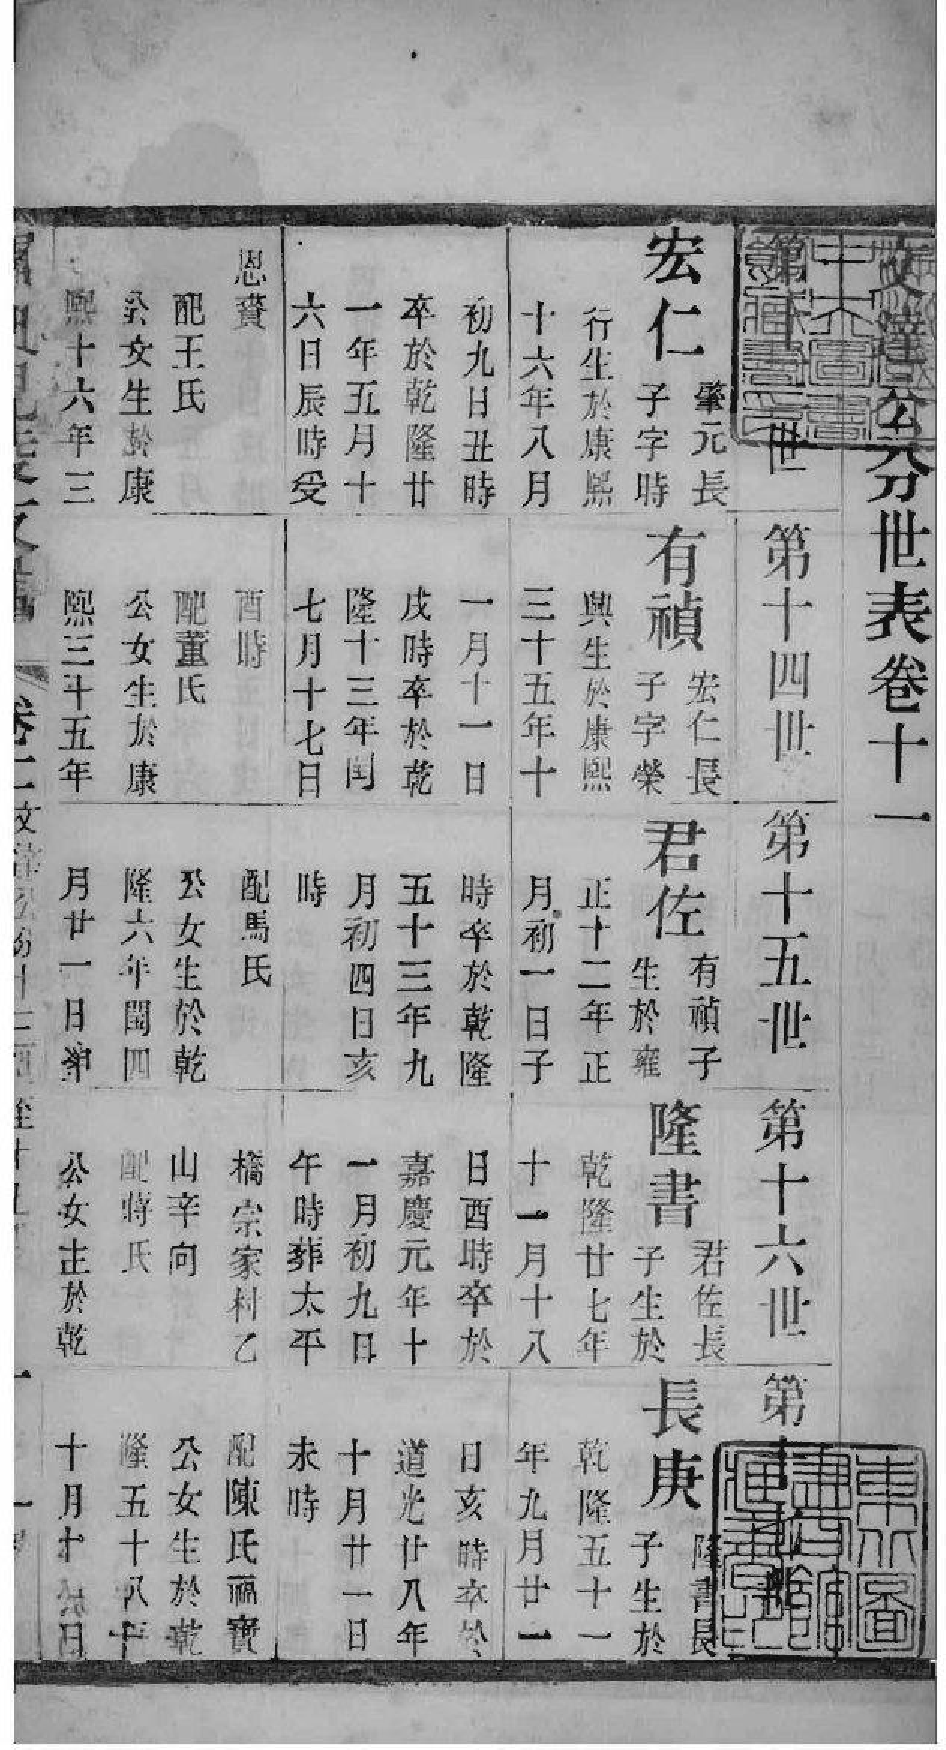 文達公分世表卷十一
第十三世
宏仁
肇元長
子字時
行生於康熙
十六年八月
初九日丑時
卒於乾隆廿
一年五月十
六日辰時受
恩賚
配王氏
公女生於康
熙十六年三
第十四世
有禎
宏仁長
子字榮
興生於康熙
三十五年十
一月十一日
戌時卒於乾
隆十三年閏
七月十七日
酉時
配董氏
公女生於康
熙三十五年
第十五世
君佐
有禎子
生於雍
正十二年正
月初一日子
時卒於乾隆
五十三年九
月初四日亥
時
配馬氏
公女生於乾
隆六年閏四
月廿一日卯
第十六世
隆書
君佐長
子生於
乾隆廿七年
十一月十八
日酉時卒於
嘉慶元年十
一月初九日
午時葬太平
橋宗家村乙
山辛向
配蔣氏
公女生於乾
第十七世
長庚
隆書長
子生於
乾隆五十一
年九月廿一
日亥時卒於
道光廿八年
十月廿一日
未時
配陳氏福寶
公女生於乾
隆五十八年
十月十 於日
卷十一